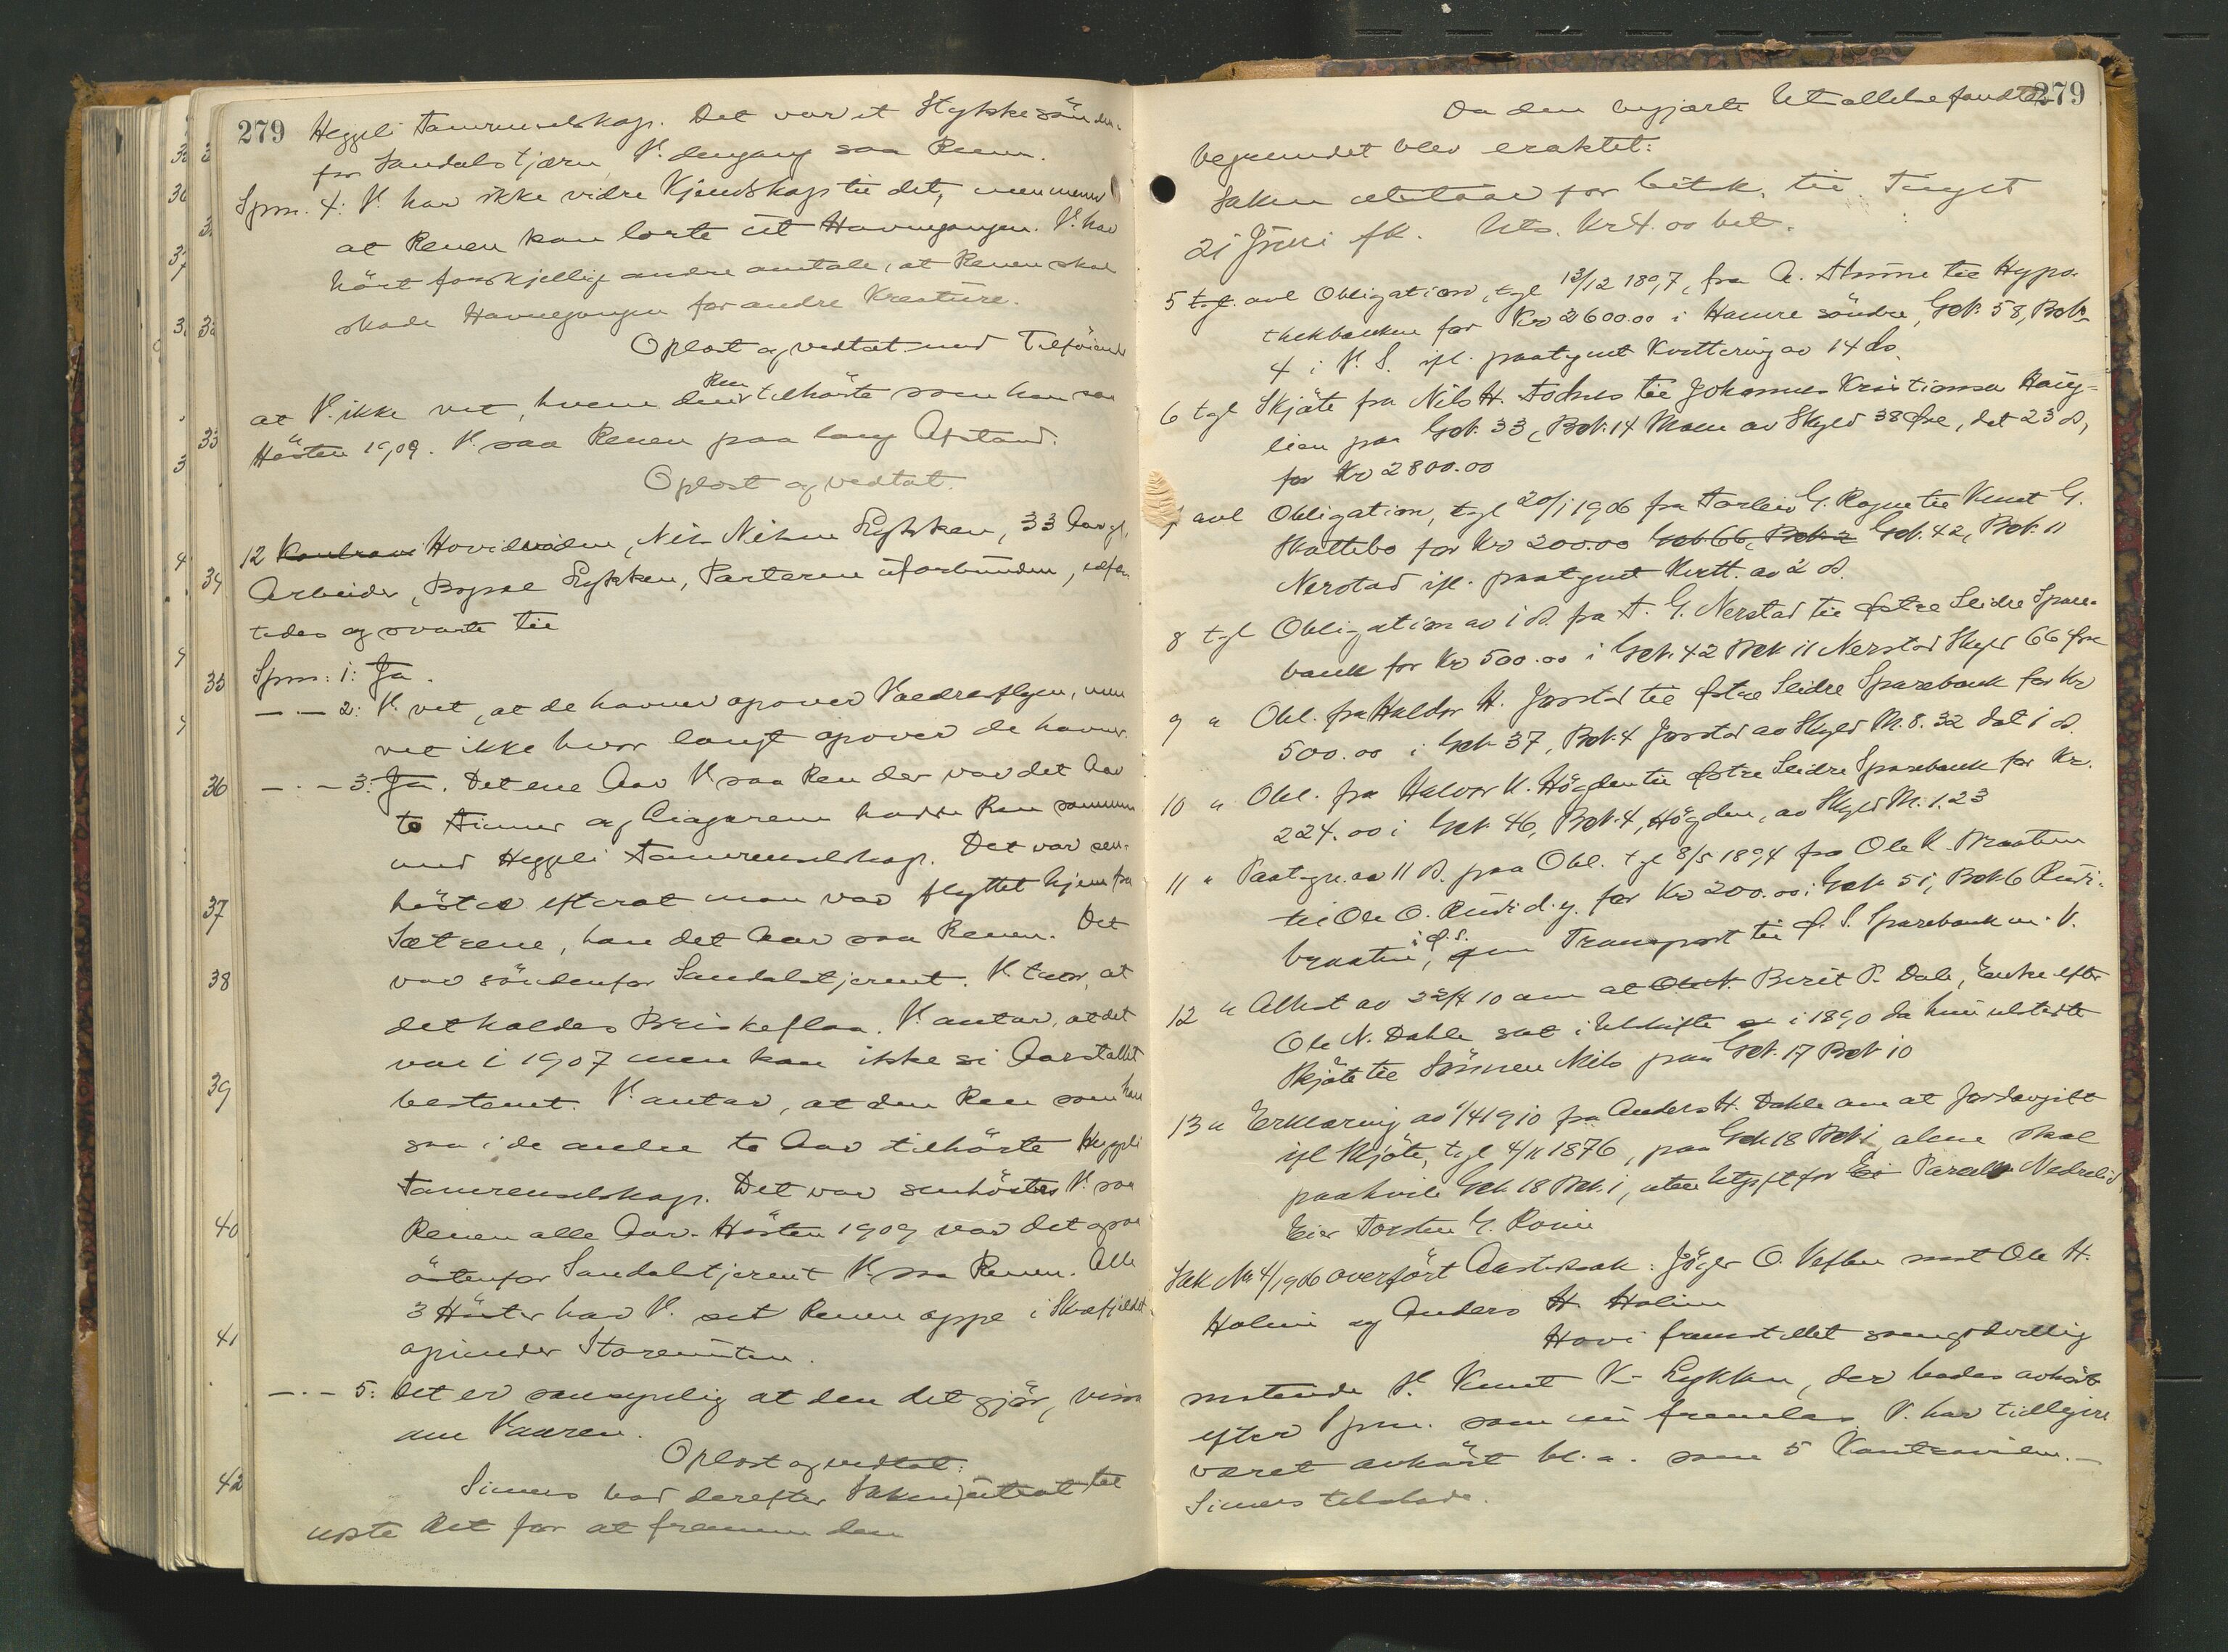 279 Heggeli Tamrenselskap. Det var et Stykke sönden-
for Sandalstjern V. dengang saa Renen.
Spm. 4: V. har ikke vidre Kjendskap til det, men mener
at Renen kan lorte ut Havnegangen. V. har
hört forskjellige andre omtale, at Renen skal
skade Havnegangen for andre Kreature.
Oplæst og vedtat med Tilföiende
at V. ikke vet, hvem den Ren tilhörte som han saa
Hösten 1909. V. saa Renen paa lang Afstand.
Oplæst og vedtat.
12 Hovidvidne, Nils Nilsen Lykken, 33 Aar gl.
Arbeider, Bopæl Lykken, Parterne uforbunden,
tedes og svarte til
Spm: 1: Ja.
— — 2: V. vet, at de havner opover Valdresflyen, men
vet ikke hvor langt opover de havner.
— · — 3: Ja. Det ene Aar V. saa Ren der var det Aar
to Finner og Ciagerne hadde Ren sammen
med Heggeli Tamrenselskap. Det var sen-
höstes efterat man var flyttet hjem fra
Sætrene, han det Aar saa Renen. Det
var söndenfor Sandalstjernet. V. tror, at
det kaldes Briskeflaa. V. antar, at det
var i 1907 men kan ikke si Aarstallet
bestemt. V. antar, at den Ren som han
saa i de andre to Aar tilhörte Heggeli
Tamrenselskap. Det var senhöstes V. saa
Renen alle Aar. Hösten 1909 var det opaa
östenfor Sandalstjernet V. saa Renen. Alle
3 Höster har V. set Renen oppe i
opunder
— · — 5: Det er sansynlig at den det gjör,
om Vaaren.
Oplæst og vedtat.
Simers bad derefter Saken utsat til
næste Ret for at fremme den
33
34
35
36
37
38
39
40
41
42
279
Da den begjærte Utsættelse fandtes
begrundet blev eraktet:
Saken utstaar for bitsk. til Tinget
21 Juni fk. Uts. Kr 4.00 bet.
5 avl Obligation, tgl 13/12 1897, fra A. til Hypo-
thekbanken for Kr 2600.00 i Hamre söndre, Gnr. 58, Bnr.
4 i V. S. ifl. paategnet Kvittering av 14 ds.
6 tgl Skjöte fra Nils H. til Johannes Kristiansen Haug-
lien paa Gnr. 33, Bnr. 14 Moen av Skyld 38 Øre, dat 23 ds,
for Kr 2800.00
7 avl Obligation, tgl 20/1 1906 fra Torleiv G. Rogne til Knut G.
Skattebo for Kr 200.00 Gnr. 42, Bnr. 11
Nerstad ifl. paategnet Kvitt. av 2 ds.
8 tgl Obligation av 1 ds. fra T. G. Nerstad til Østre Slidre Spare-
bank for Kr 500.00 i Gnr. 42 Bnr 11 Nerstad Skyld 66 Øre
9 " Obl. fra Haldor H. Jarstad til Østre Slidre Sparebank for Kr
500.00 i Gnr 37, Bnr. 4 Jarstad av Skyld M. 8.32 dat 1 ds.
10 " Obl. fra Halvor K. Högden til Østre Slidre Sparebank for Kr.
224.00 i Gnr 46, Bnr. 4, Högden, av Skyld M. 1.23
11 " Paategn. av 11 ds. paa Obl. tgl 8/5 1894 fra Ole K. Braaten
til Ole O. Rudi d.y. for Kr 200.00 i Gnr 51, Bnr 6 Rudi-
braaten, i Ø. S. Transport til Ø. S. Sparebank m. V.
12 " Attest av 22/4 10 om at Berit P. Dale, Enke efter
Ole N. Dahle sat i Uskifte i 1890 da hun utstedte
Skjöte til Sönnen Nils paa Gnr. 17 Bnr 10
13 " Erklæring av 1/4 1910 fra Anders H. Dahle om at Jordavgift
ifl Skjöte, tgl 4/11 1876, paa Gnr 18 Bnr 1, alene skal
paahvile Gnr. 18 Bnr. 1, uten Utgift for Parcel Nedrelid
Eier Torsten G. Ronin
Sak No 4/1906 overfört Aastedssak: Jöger O. Veflen mot Ole H.
Holien og Anders H. Holien
Hovi fremstillet som godvillig
mötende V. Knut K. Lykken, der bades avhört
efter Spm. som nu fremlæs. V. har tidligere
været avhört bl. a. som 5 Kontravidne. —
Simers tilstede.